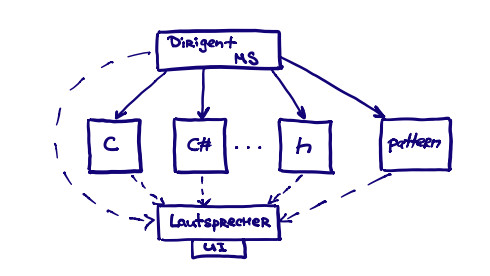 Dirigent
MS
C
C#
...
h
pattern
Lautsprecher
UI